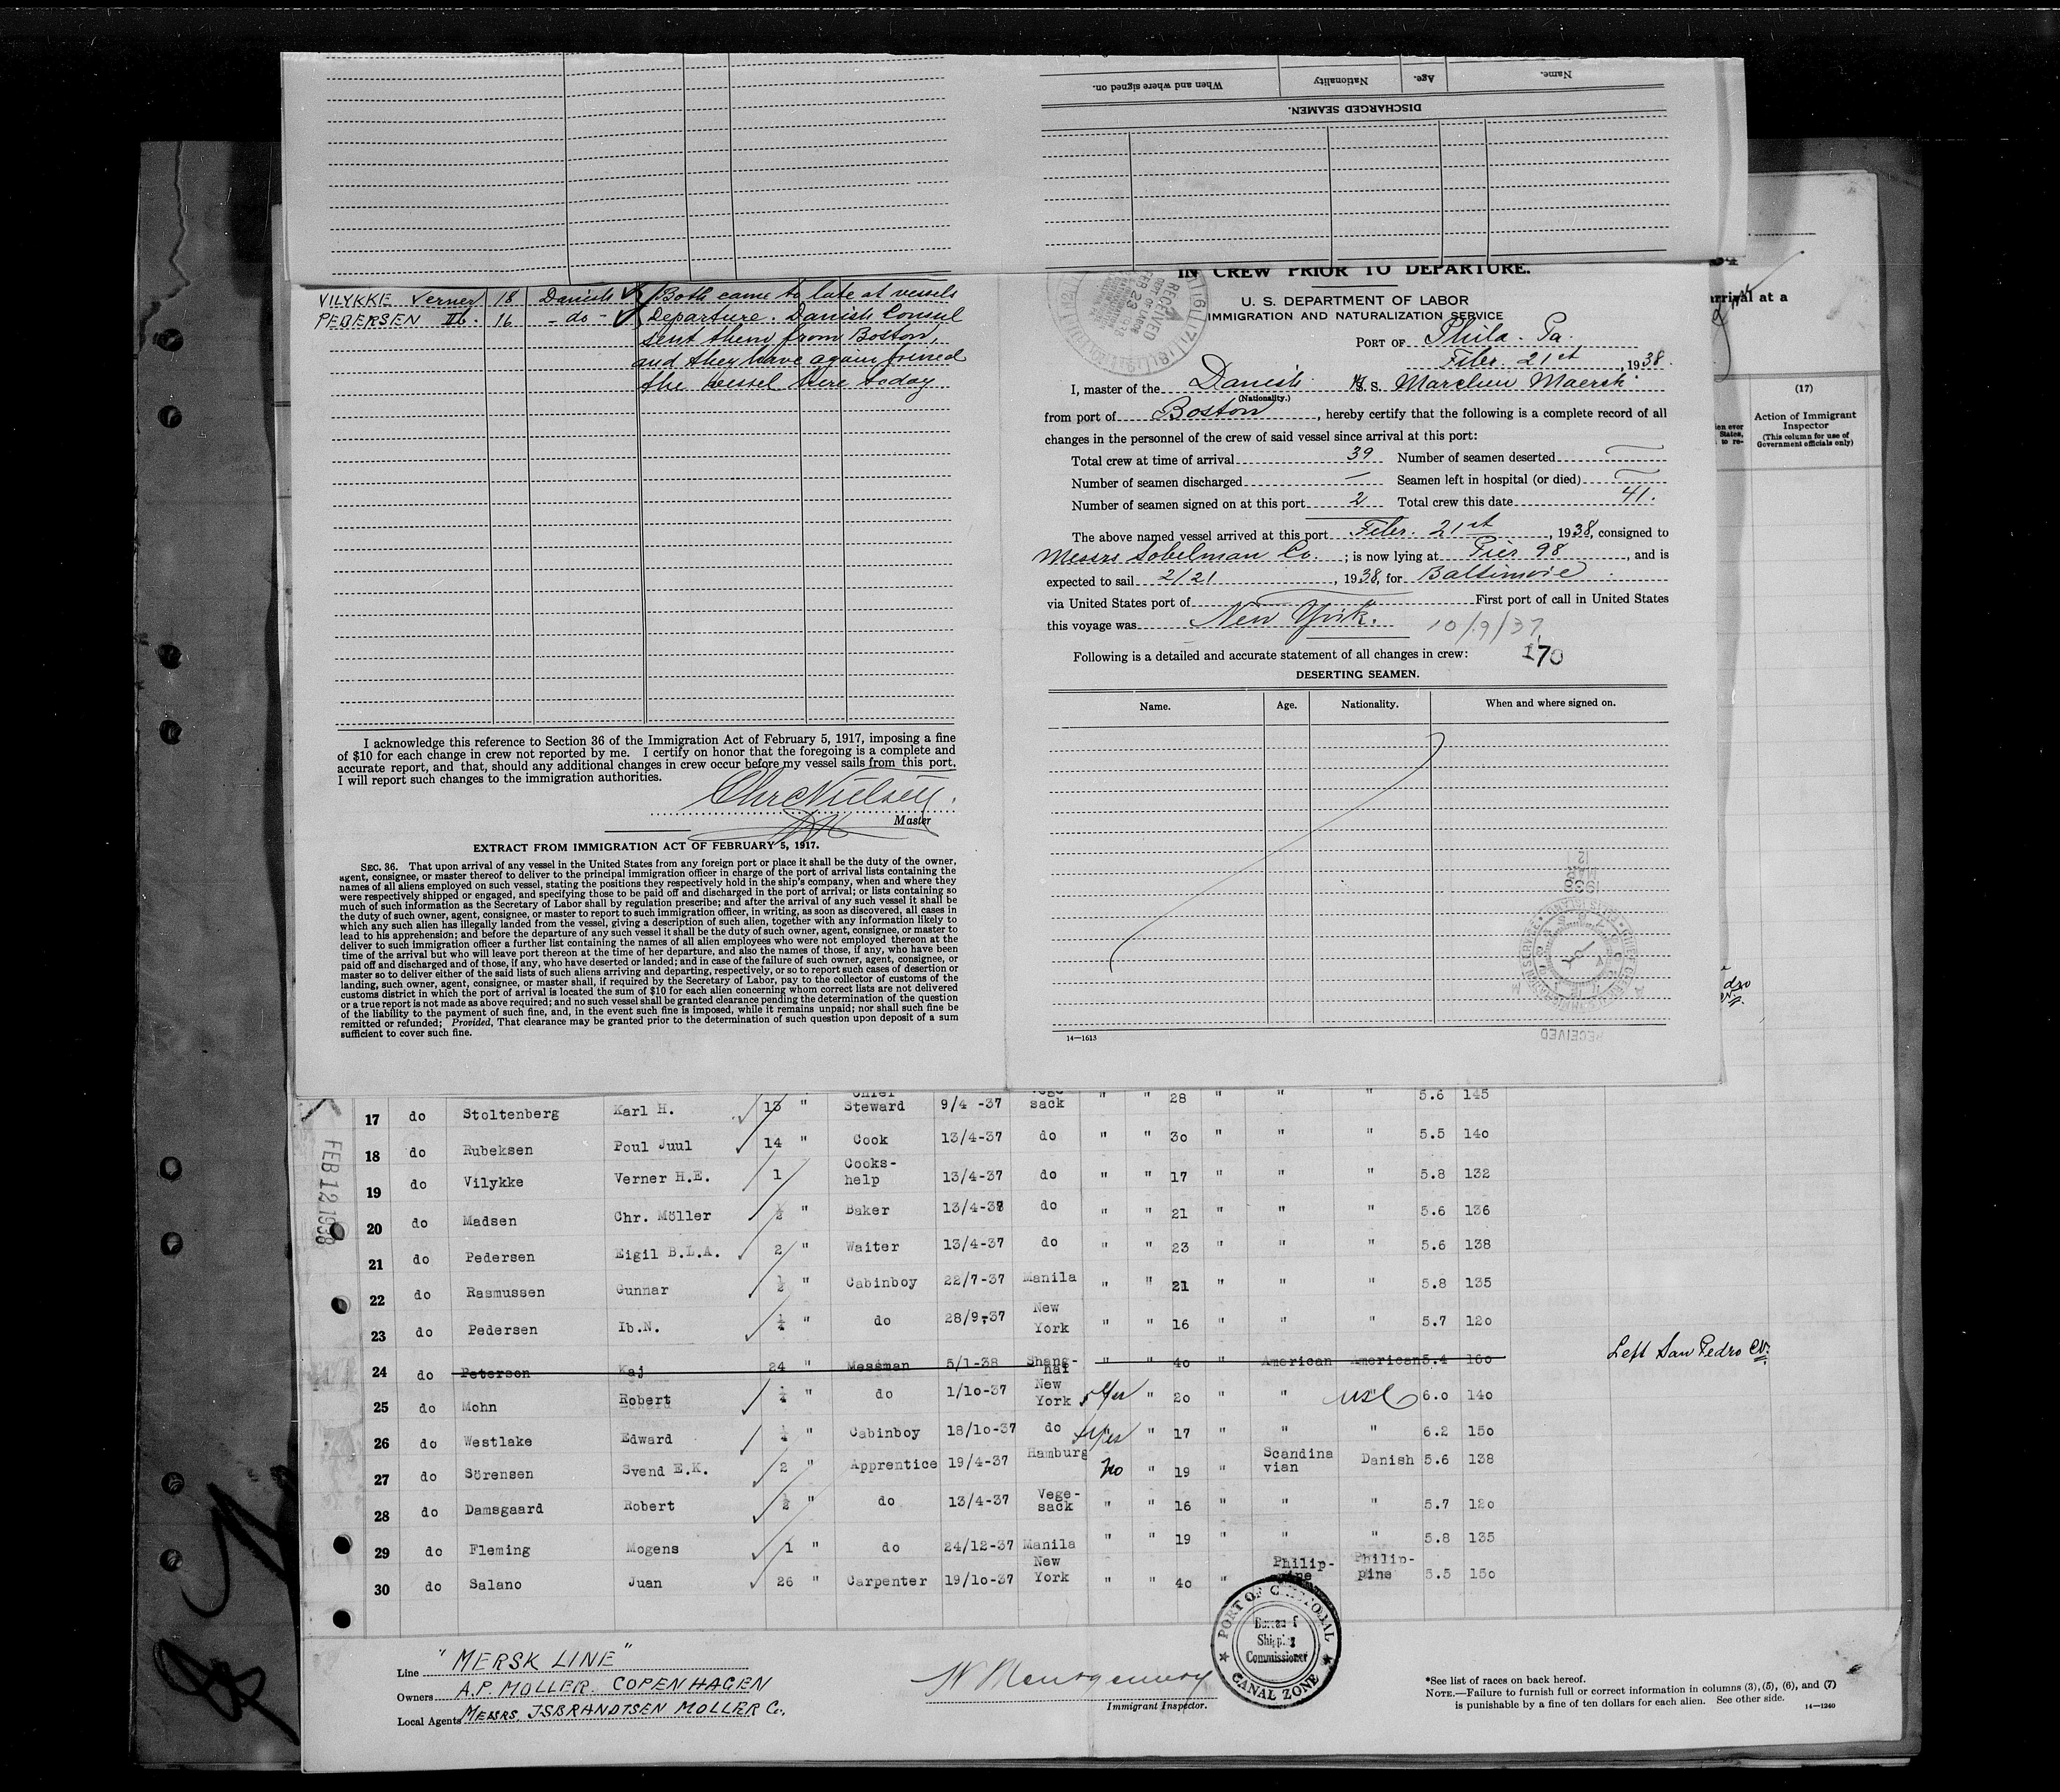 When and where signed on.
Nationality.
Age.
Name.
DISCHARGED SEAMEN.
VILYKKE Verner 18 Danish Both came to late at vessels
PEDERSEN Ib. 16 - do - Departure. Danish Consul
sent them from Boston,
and they have again joined
the vessel here today
I acknowledge this reference to Section 36 of the Immigration Act of February 5, 1917, imposing a fine
of $10 for each change in crew not reported by me. I certify on honor that the foregoing is a complete and
accurate report, and that, should any additional changes in crew occur before my vessel sails from this port,
I will report such changes to the immigration authorities.
Chr Nielsen
Master
EXTRACT FROM IMMIGRATION ACT OF FEBRUARY 5, 1917.
SEC. 36. That upon arrival of any vessel in the United States from any foreign port or place it shall be the duty of the owner,
agent, consignee, or master thereof to deliver to the principal immigration officer in charge of the port of arrival lists containing the
names of all aliens employed on such vessel, stating the positions they respectively hold in the ship's company, when and where they
were respectively shipped or engaged, and specifying those to be paid off and discharged in the port of arrival; or lists containing so
much of such information as the Secretary of Labor shall by regulation prescribe; and after the arrival of any such vessel it shall be
the duty of such owner, agent, consignee, or master to report to such immigration officer, in writing, as soon as discovered, all cases in
which any such alien has illegally landed from the vessel, giving a description of such alien, together with any information likely to
lead to his apprehension; and before the departure of any such vessel it shall be the duty of such owner, agent, consignee, or master to
deliver to such immigration officer a further list containing the names of all alien employees who were not employed thereon at the
time of the arrival but who will leave port thereon at the time of her departure, and also the names of those, if any, who have been
paid off and discharged and of those, if any, who have deserted or landed; and in case of the failure of such owner, agent, consignee, or
master so to deliver either of the said lists of such aliens arriving and departing, respectively, or so to report such cases of desertion or
landing, such owner, agent, consignee, or master shall, if required by the Secretary of Labor, pay to the collector of customs of the
customs district in which the port of arrival is located the sum of $10 for each alien concerning whom correct lists are not delivered
or a true report is not made as above required; and no such vessel shall be granted clearance pending the determination of the question
of the liability to the payment of such fine, and, in the event such fine is imposed, while it remains unpaid; nor shall such fine be
remitted or refunded; Provided, That clearance may be granted prior to the determination of such question upon deposit of a sum
sufficient to cover such fine.
IN CREW PRIOR TO DEPARTURE.
U. S. DEPARTMENT OF LABOR
IMMIGRATION AND NATURALIZATION SERVICE
RECEIVED
FEB 23
PORT OF Phila. Pa.
Febr. 21st, 1938.
I, master of the Danish M. S. Marchen Maersk
(Nationality.)
from port of Boston, hereby certify that the following is a complete record of all
changes in the personnel of the crew of said vessel since arrival at this port:
Total crew at time of arrival 39 Number of seamen deserted
Number of seamen discharged — Seamen left in hospital (or died)
Number of seamen signed on at this port 2 Total crew this date 41.
The above named vessel arrived at this port Febr. 21st, 1938, consigned to
Messrs Sobelman Co. ; is now lying at Pier 98, and is
expected to sail 2/21, 1938, for Baltimore
via United States port of First port of call in United States
this voyage was New York. 10/9/37
170
Following is a detailed and accurate statement of all changes in crew:
DESERTING SEAMEN.
Name. Age. Nationality. When and where signed on.
MAR
1938
RECEIVED
14—1613
arrival at a
(17)
Action of Immigrant
Inspector
(This column for use of
Government officials only)
FEB 12 1938
17 do Stoltenberg Karl H. 13 " Chief Steward 9/4 -37 Vegesack " " 28 " " " 5.6 145
18 do Rubeksen Poul Juul 14 " Cook 13/4-37 do " " 30 " " " 5.5 140
19 do Vilykke Verner H.E. 1 Cooks-help 13/4-37 do " " 17 " " " 5.8 132
20 do Madsen Chr. Möller ½ " Baker 13/4-38 do " " 21 " " " 5.6 136
21 do Pedersen Eigil B.L.A. 2 " Waiter 13/4-37 do " " 23 " " " 5.6 138
22 do Rasmussen Gunnar ½ " Cabinboy 22/7-37 Manila " " 21 " " " 5.8 135
23 do Pedersen Ib.N. ¼ " do 28/9-37 New York " " 16 " " " 5.7 120
24 do Peterson Kaj 24 " Messman 5/1-38 Shang-hai " " 40 " American American 5.4 160 Left San Pedro
25 do Mohn Robert ¼ " do 1/10-37 New York yes " 20 " " USC 6.0 140
26 do Westlake Edward ¼ " Cabinboy 18/10-37 do yes " 17 " " " 6.2 150
27 do Sörensen Svend E.K. 2 " Apprentice 19/4-37 Hamburg no " 19 " Scandinavian Danish 5.6 138
28 do Damsgaard Robert ½ " do 13/4-37 Vege-sack " " 16 " " " 5.7 120
29 do Fleming Mogens 1 " do 24/12-37 Manila " " 19 " " 5.8 135
30 do Salano Juan 26 " Carpenter 19/10-37 New York " " 40 " Philip-pine Philip-pine 5.5 150
Line "MERSK LINE"
Owners A.P. MOLLER. COPENHAGEN
Local Agents MESSRS. ISBRANDTSEN MOLLER Co.
N Montgomery
Immigrant Inspector.
PORT OF CRISTOBAL
Bureau of
Shipping
Commissioner
CANAL ZONE
*See list of races on back hereof.
NOTE.—Failure to furnish full or correct information in columns (3), (5), (6), and (7)
is punishable by a fine of ten dollars for each alien. See other side.
14—1240